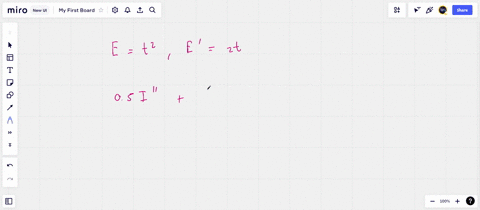 miro New UI My First Board Share
E = t² , E' = 2t
0.5 I'' +
100%